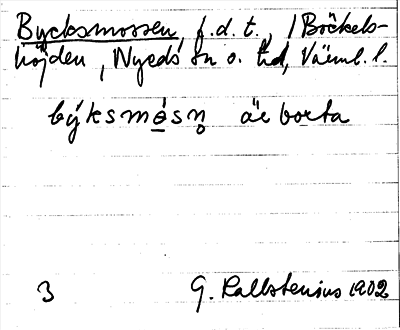 Bycksmossen, f.d. t., / Böckels-
höjden, Nyeds sn o. hd, Värml. l.
býksmǫ̀sn̥ är borta
3 G. Kallstenius 1902